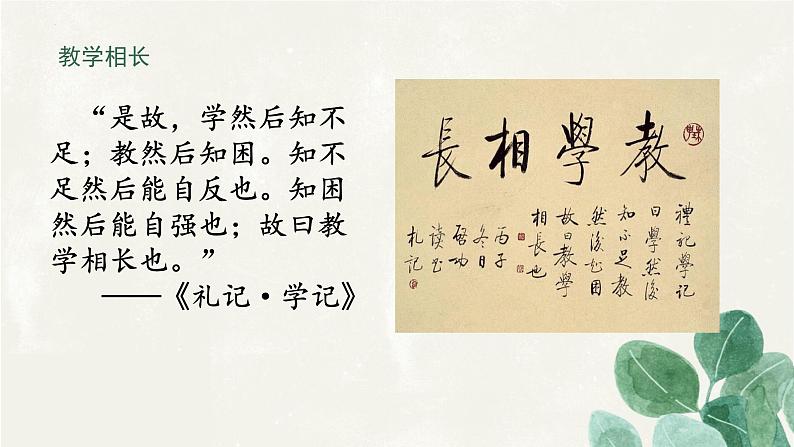 教学相长
“是故，学然后知不
足；教然后知困。知不
足然后能自反也。知困
然后能自强也；故曰教
学相长也。”
——《礼记·学记》
教學相長
禮記學記
曰學然後
知不足教
然後知困
故曰教學
相長也
丙子
冬日
啓功
读书
札记